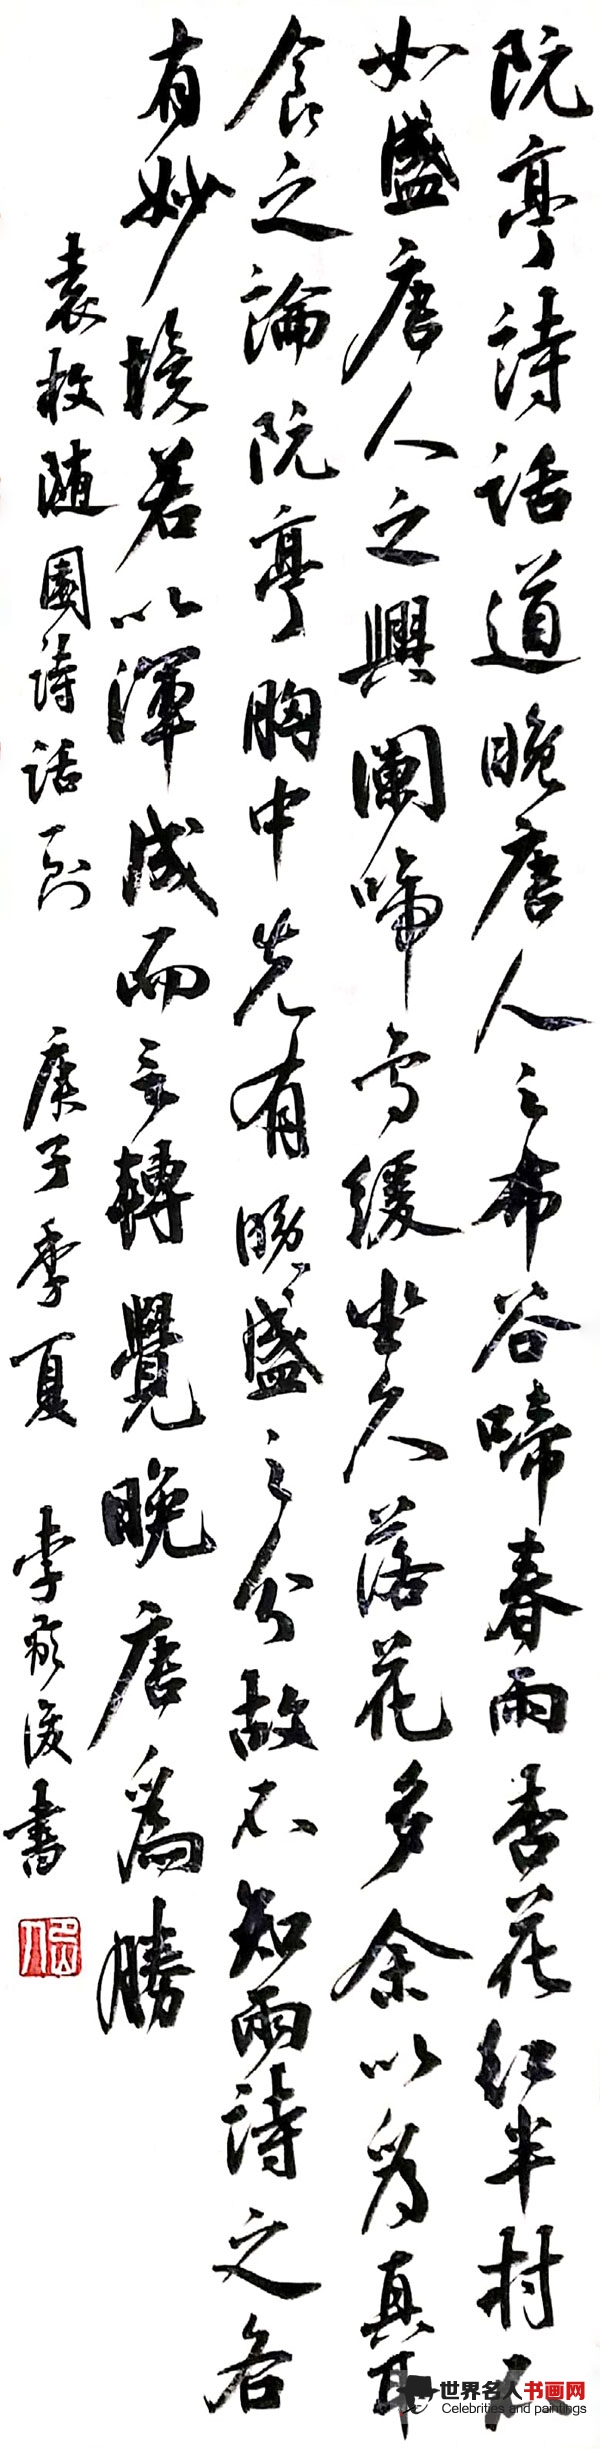 阮亭詩話道晚唐人之布谷啼春雨杏花红半村不
如盛唐人之興闌啼鸟缓坐久落花多余以为真耳
食之論阮亭胸中先有晚盛之分故不知兩詩之各
有妙境若以渾成而言轉覺晚唐爲勝
袁枚随園詩話一則
庚子季夏 李 俊書
世界名人书画网
Celebrities and paintings